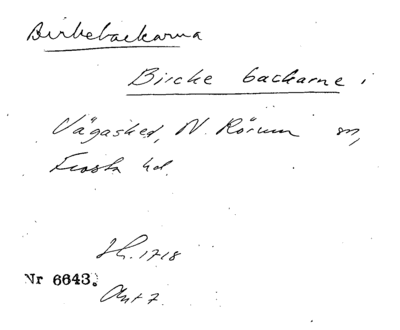 Birkebackarna
Bircke backarne i
Vägasked, N. Rörum sn,
Frosta hd.
Jb. 1718
Nr 6643.
Ant 7.